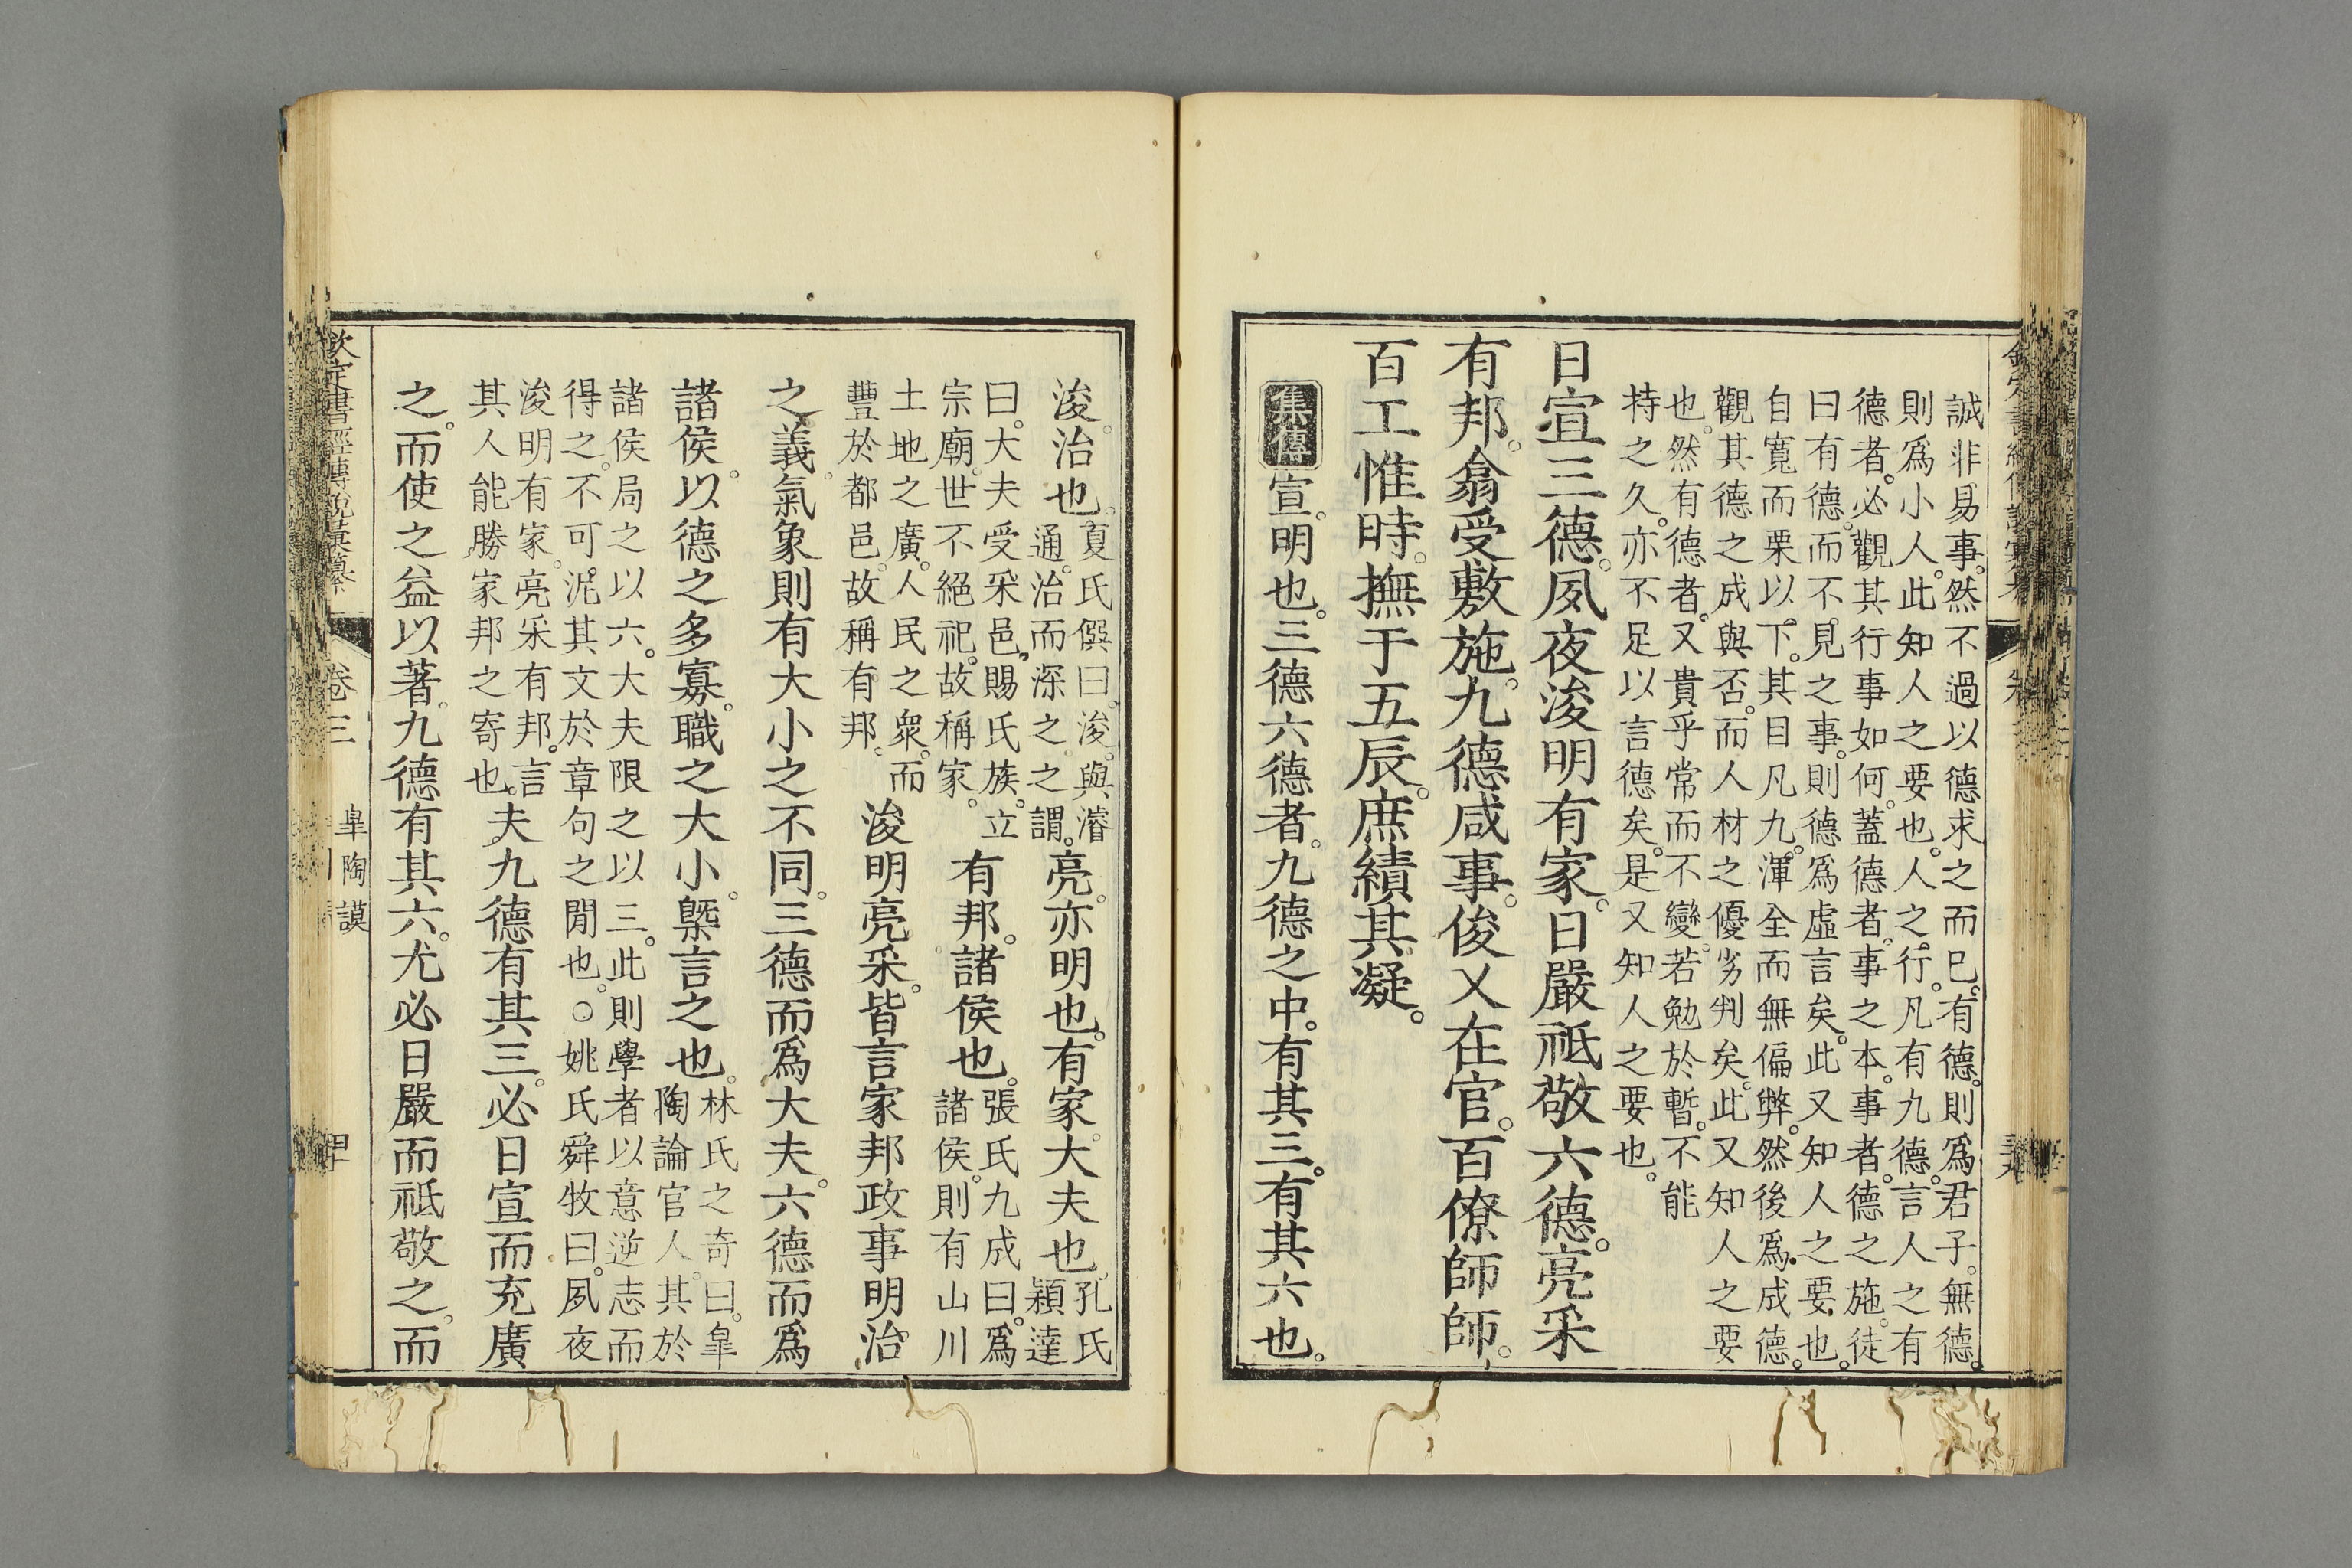 誠非易事。然不過以德求之而已。有德。則爲君子。無德。
則爲小人。此知人之要也。人之行。凡有九德。言人之有
德者。必觀其行事如何。蓋德者。事之本。事者。德之施。徒
曰有德。而不見之事。則德爲虛言矣。此又知人之要也。
自寬而栗以下。其目凡九。渾全而無偏弊。然後爲成德。
觀其德之成與否。而人材之優劣判矣。此又知人之要
也。然有德者。又貴乎常而不變。若勉於暫。不能
持之久。亦不足以言德矣。是又知人之要也。
日宣三德。夙夜浚明有家。日嚴祗敬六德。亮采
有邦。翕受敷施。九德咸事。俊乂在官。百僚師師。
百工惟時。撫于五辰。庶績其凝。
集傳 宣。明也。三德六德者。九德之中。有其三。有其六也。
浚。治也。
夏氏僎曰。浚。與濬
通。治而深之之謂。
亮。亦明也。有家。大夫也。
孔氏
穎達
曰。大夫受采邑。賜氏族。立
宗廟。世不絕祀。故稱家。
有邦。諸侯也。
張氏九成曰。爲
諸侯。則有山川
土地之廣。人民之衆。而
豐於都邑。故稱有邦。
浚明亮采。皆言家邦政事明治
之義。氣象則有大小之不同。三德而爲大夫。六德而爲
諸侯。以德之多寡。職之大小。槩言之也。
林氏之奇曰。皐
陶論官人。其於
諸侯局之以六。大夫限之以三。此則學者以意逆志而
得之。不可泥其文於章句之閒也。○姚氏舜牧曰。夙夜
浚明有家。亮采有邦。言
其人能勝家邦之寄也。
夫九德有其三。必日宣而充廣
之。而使之益以著。九德有其六。尤必日嚴而祗敬之。而
欽定書經傳說彙纂 卷三 皐陶謨